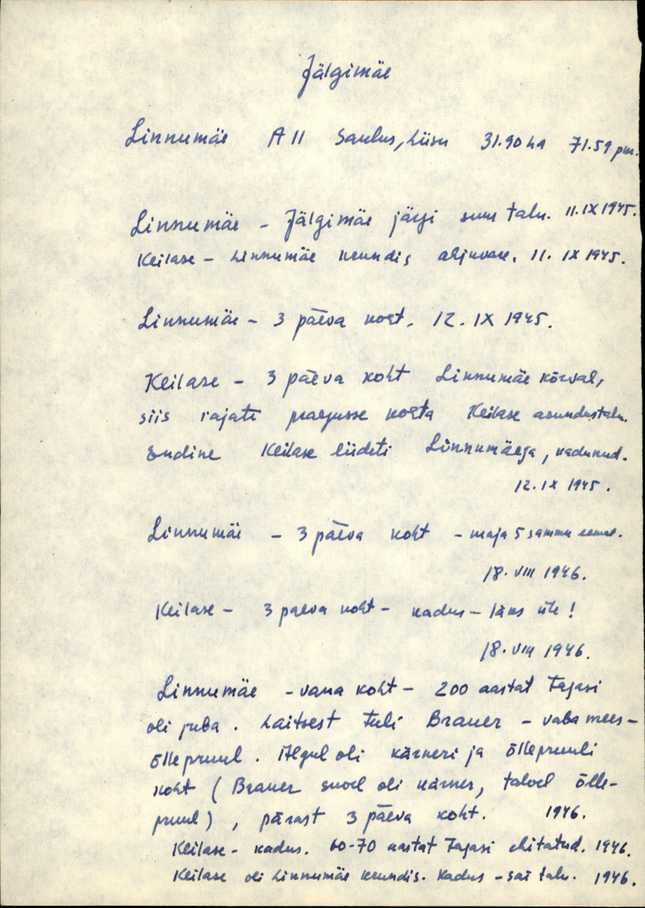 Jälgimäe
Linnumäe A 11 Saulus, Liisu 31.90 ha 71.59
Linnumäe - Jälgimäe järgi suur talu. 11.IX 1945.
Keilase - Linnumäe krundis 11. IX 1945.
Linnumäe - 3 päeva koht. 12. IX 1945.
Keilase - 3 päeva koht Linnumäe kõrval,
siis rajati praegusse kohta Keilase asundustalu.
Endine Keilase liideti Linnumäega, kadunud.
12. IX 1945.
Linnumäe - 3 päeva koht - maja 5 sammu eemal.
18. VIII 1946.
Keilase - 3 päeva koht - kadus - läks üle!
18. VIII 1946.
Linnumäe - vana koht - 200 aastat tagasi
oli juba. Laitsest tuli Brauer - vaba mees -
õllepruul. Algul oli kärneri ja õllepruuli
koht (Brauer suvel oli kärner, talvel õlle-
pruul), pärast 3 päeva koht. 1946.
Keilase - kadus. 60-70 aastat tagasi ehitatud. 1946.
Keilase oli Linnumäe krundis. Kadus - sai talu. 1946.